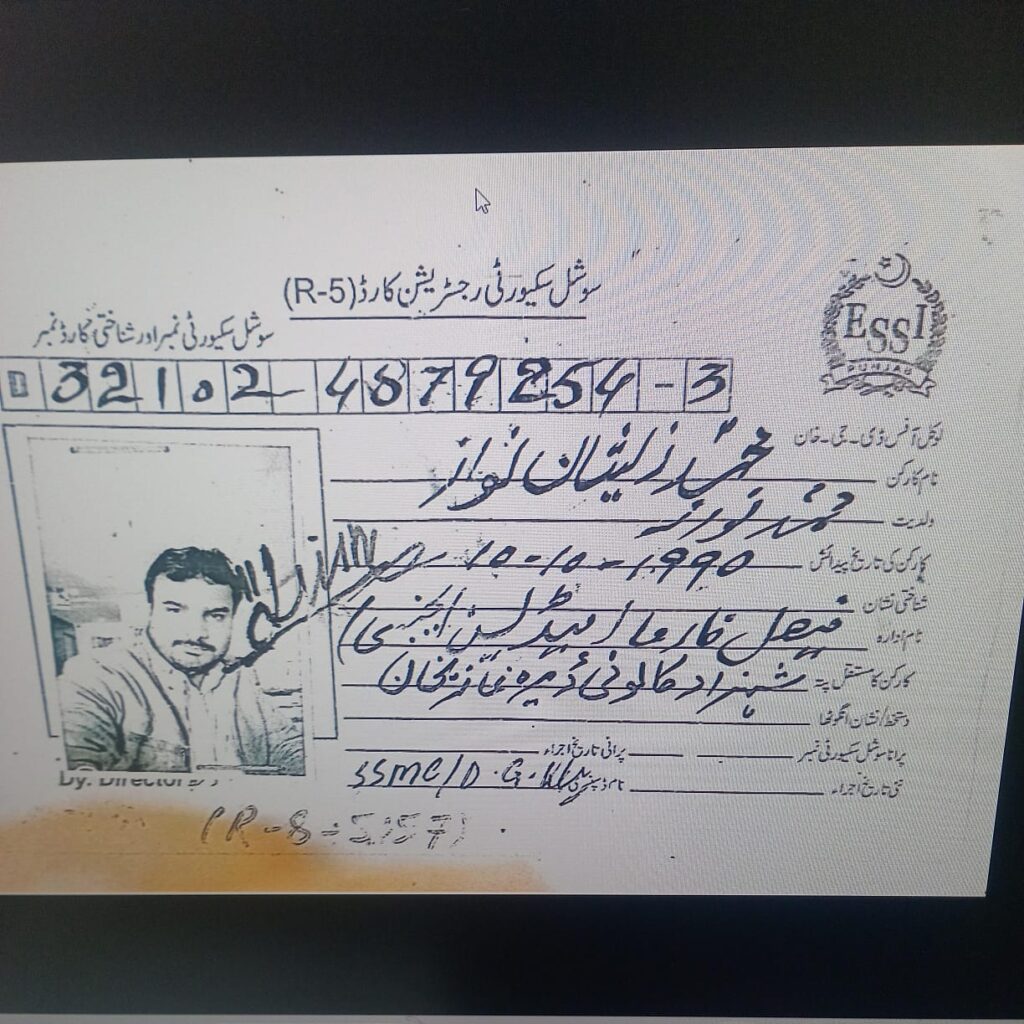 سوشل سیکیورٹی رجسٹریشن کارڈ (R-5)
ESSI
PUNJAB
سوشل سیکیورٹی نمبر اور شناختی کارڈ نمبر
32102-4879254-3
لوکل آفس ڈی۔جی۔خان
نام کارکن محمد ذیشان نواز
ولدیت محمد نواز
کارکن کی تاریخ پیدائش 10-10-1990
شناختی نشان
نام ادارہ فیصل فارما (میڈیسن ایجنسی)
کارکن کا مستقل پتہ شہزاد کالونی ڈیرہ غازیخان
دستخط/نشان انگوٹھا
پرانا سوشل سیکیورٹی نمبر پرانی تاریخ اجراء
نئی تاریخ اجراء نام ڈسپنسری SSMC/D.G.
Dy. Director
(R-8-5157)